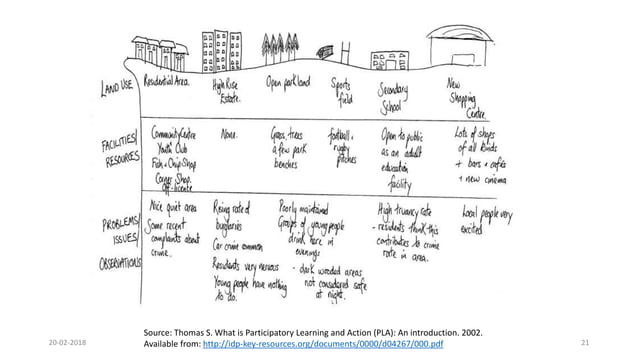 LAND USE
Residential Area.
High Rise
Estate.
Open parkland
Sports
field
Secondary
School
New
Shopping
Centre.
FACILITIES/
RESOURCES
Community Centre
Youth Club
Fish + Chip Shop
Corner Shop.
Off-licente
None.
Grass, trees
a few park
benches
football +
rugby
pitches
Open to public
as an adult
education
facility
Lots of shops
of all kinds
+ bars + cafés
+ new cinema
PROBLEMS/
ISSUES/
OBSERVATIONS
Nice quiet area
Some recent
complaints about
crime.
Rising rate of
burglaries
Car crime common
Residents very nervous
Young people have nothing
to do.
Poorly maintained
Groups of young people
drink here in
evenings
- dark wooded areas
not considered safe
at night.
High truancy rate
- residents think this
contributes to crime
rate in area.
Local people very
excited
Source: Thomas S. What is Participatory Learning and Action (PLA): An introduction. 2002.
Available from: http://idp-key-resources.org/documents/0000/d04267/000.pdf
20-02-2018
21